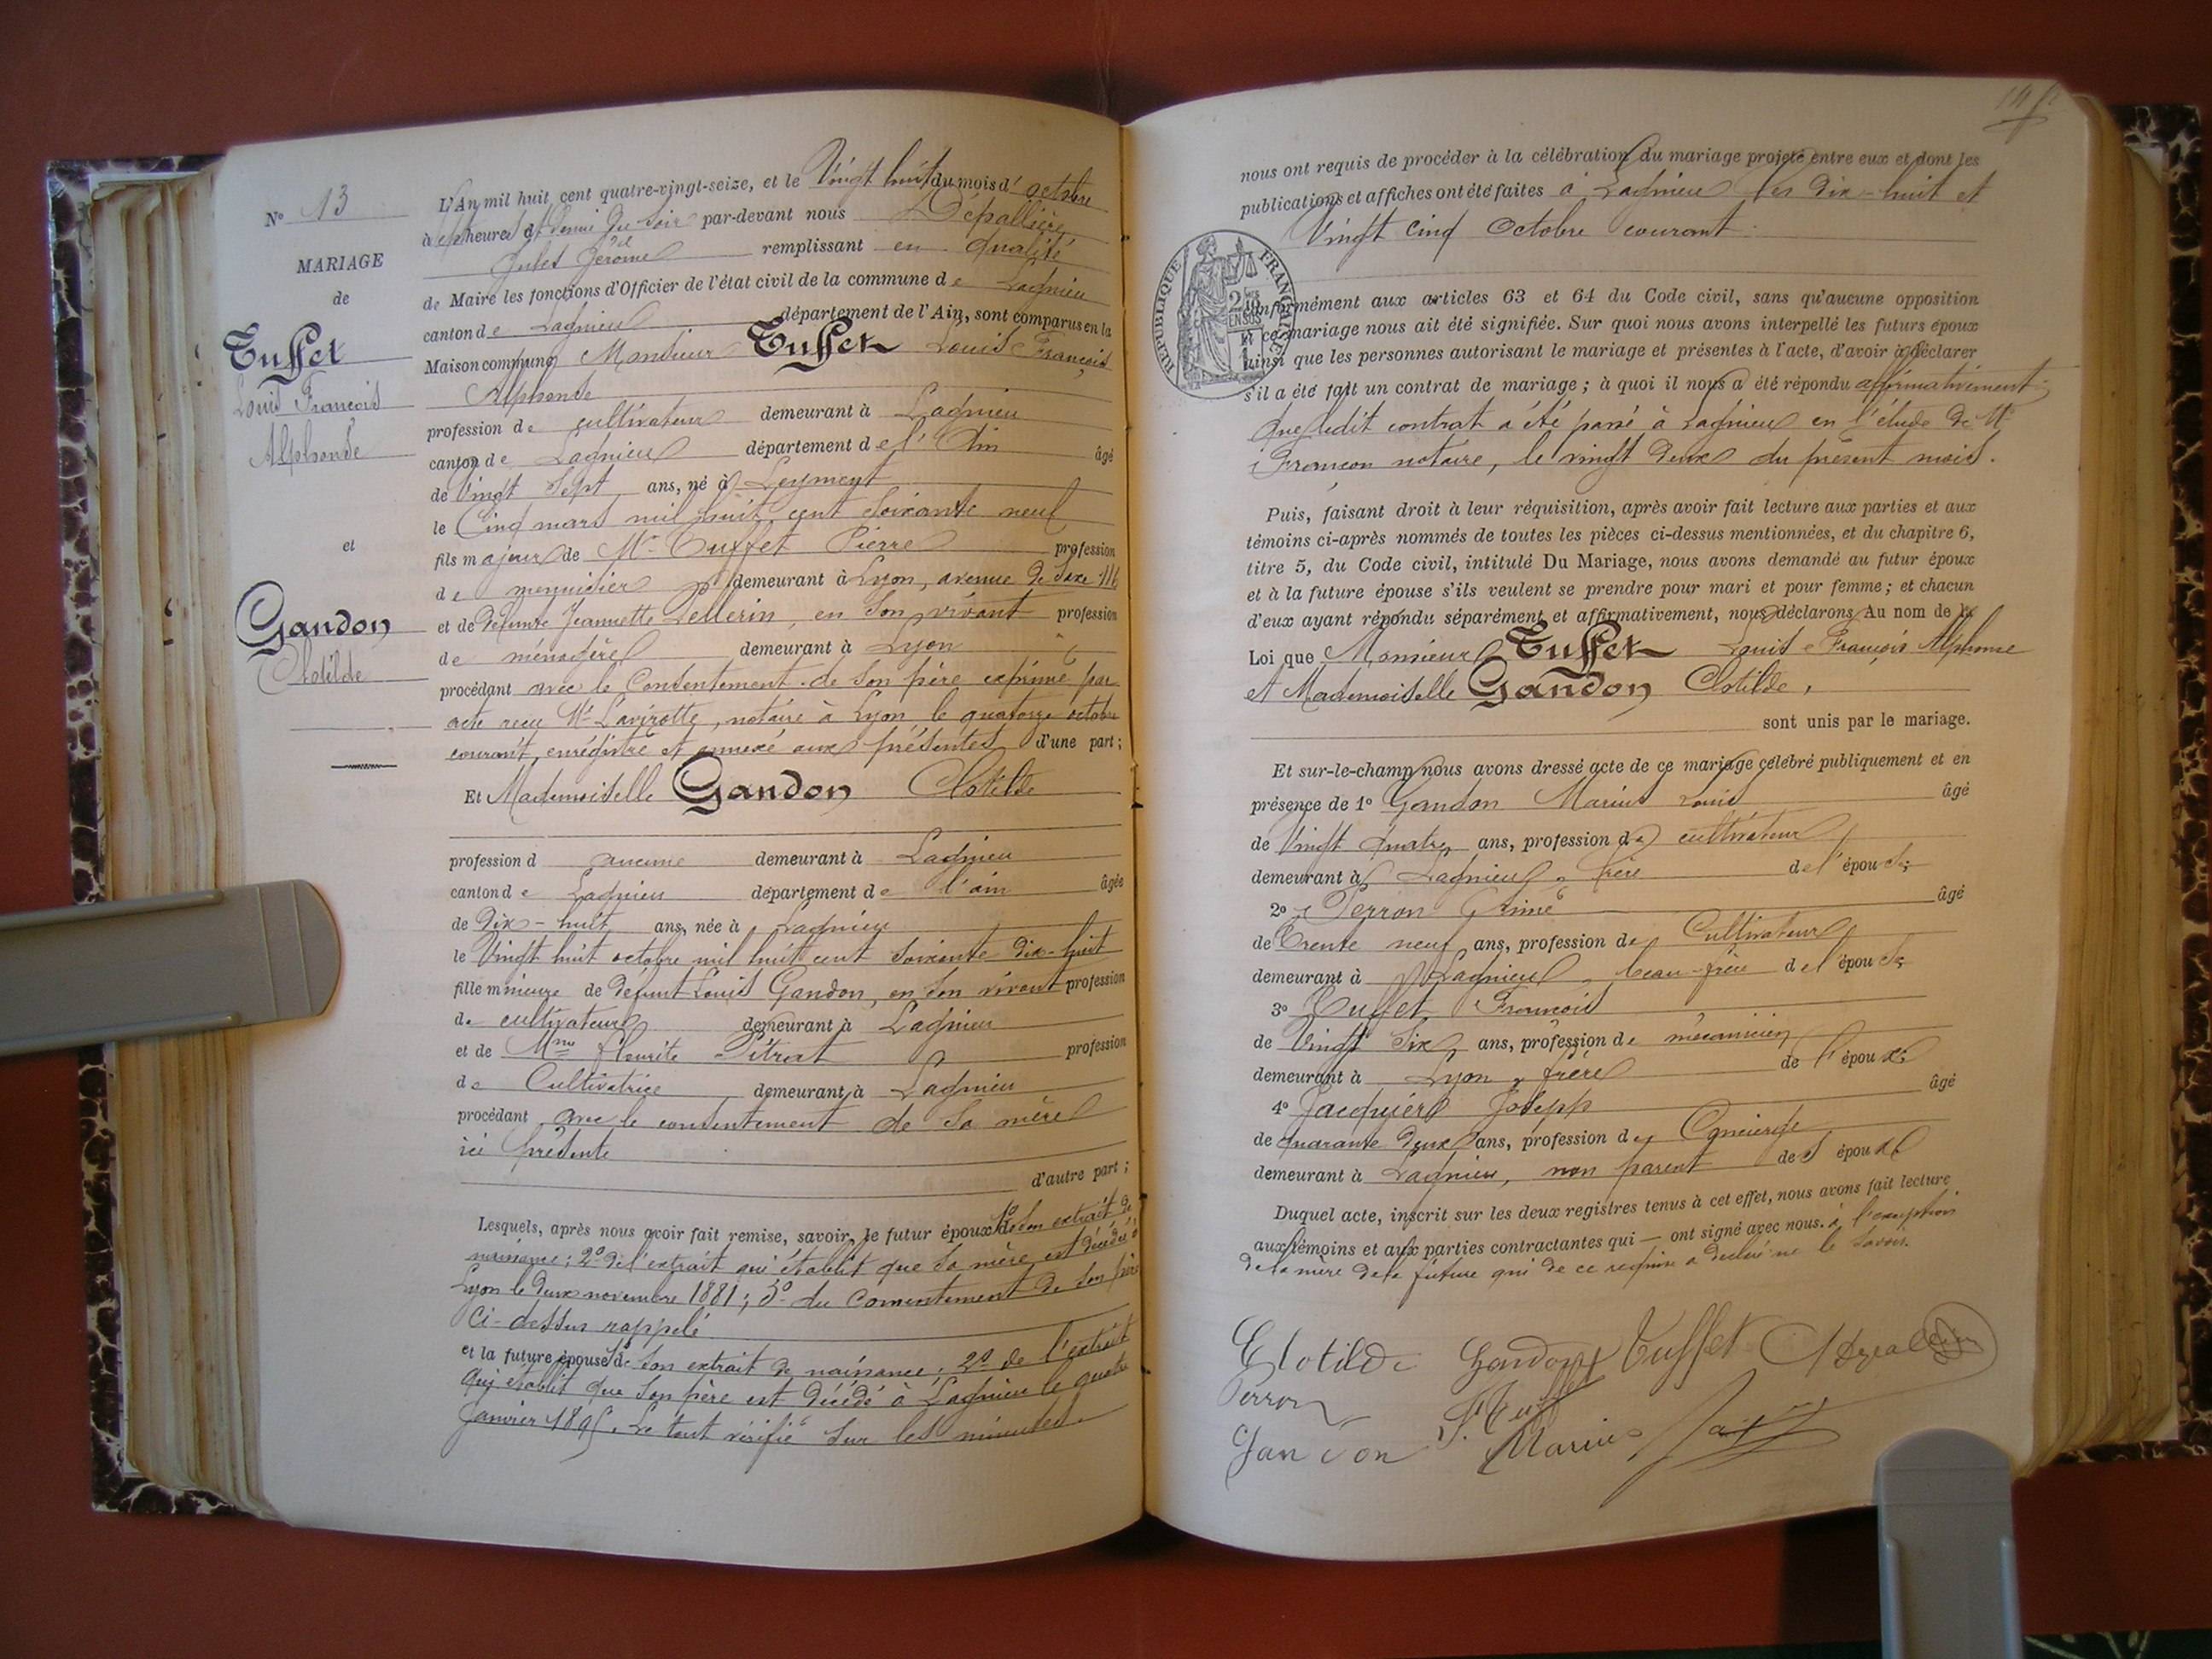 N° 13
MARIAGE
de
Tuffet
Louis François
Alphonse
et
Gandon
Clotilde
L'An mil huit cent quatre-vingt-seize, et le Vingt huit du mois d'octobre
à sept heures et demie du soir par-devant nous Dépallière
Jules Jérôme remplissant en qualité
de Maire les fonctions d'Officier de l'état civil de la commune de Lagnieu
canton de Lagnieu département de l'Ain, sont comparus en la
Maison commune Monsieur Tuffet Louis François
Alphonse
profession de cultivateur demeurant à Lagnieu
canton de Lagnieu département de l'Ain âgé
de Vingt sept ans, né à Leyment
le Cinq mars mil huit cent soixante neuf
fils majeur de Mr Tuffet Pierre profession
de menuisier demeurant à Lyon, avenue de Saxe 116
et de défunte Jeannette Pellerin, en son vivant profession
de ménagère demeurant à Lyon
procédant avec le Consentement de son père exprimé par
acte reçu Me Lavirotte, notaire à Lyon le quatorze octobre
courant, enrégistré et annexé aux présentes d'une part ;
Et Mademoiselle Gandon Clotilde
profession d aucune demeurant à Lagnieu
canton de Lagnieu département de l'ain âgée
de Dix-huit ans, née à Lagnieu
le Vingt huit octobre mil huit cent soixante dix-huit
fille mineure de défunt Louis Gandon, en son vivant profession
de cultivateur demeurant à Lagnieu
et de Mme fleurite Pitrat profession
de Cultivatrice demeurant à Lagnieu
procédant avec le consentement de sa mère
ici présente
d'autre part ;
Lesquels, après nous avoir fait remise, savoir, le futur époux 1° de son extrait de
naissance ; 2° de l'extrait qui établit que sa mère est décédée à
Lyon le deux novembre 1881 ; 3° du Consentement de son père
Ci-dessus rappelé
et la future épouse 1° de son extrait de naissance ; 2° de l'extrait
qui établit que son père est décédé à Lagnieu le quatre
Janvier 1895. Le tout vérifié sur les minutes.
nous ont requis de procéder à la célébration du mariage projeté entre eux et dont les
publications et affiches ont été faites à Lagnieu les dix-huit et
Vingt cinq Octobre courant
RÉPUBLIQUE FRANÇAISE
conformément aux articles 63 et 64 du Code civil, sans qu'aucune opposition
à ce mariage nous ait été signifiée. Sur quoi nous avons interpellé les futurs époux
ainsi que les personnes autorisant le mariage et présentes à l'acte, d'avoir à déclarer
s'il a été fait un contrat de mariage ; à quoi il nous a été répondu affirmativement
que ledit contrat a été passé à Lagnieu en l'étude de Me
Françon notaire, le vingt deux du présent mois.
Puis, faisant droit à leur réquisition, après avoir fait lecture aux parties et aux
témoins ci-après nommés de toutes les pièces ci-dessus mentionnées, et du chapitre 6,
titre 5, du Code civil, intitulé Du Mariage, nous avons demandé au futur époux
et à la future épouse s'ils veulent se prendre pour mari et pour femme ; et chacun
d'eux ayant répondu séparément et affirmativement, nous déclarons Au nom de la
Loi que Monsieur Tuffet Louis François Alphonse
et Mademoiselle Gandon Clotilde,
sont unis par le mariage.
Et sur-le-champ nous avons dressé acte de ce mariage célébré publiquement et en
présence de 1° Gandon Marius Louis âgé
de Vingt quatre ans, profession de cultivateur
demeurant à Lagnieu, frère de l'épouse
2° Perron Aimé âgé
de Trente neuf ans, profession de Cultivateur
demeurant à Lagnieu, beau-frère de l'épouse
3° Tuffet François
de Vingt Six ans, profession de mécanicien
demeurant à Lyon, frère de l'époux
4° Jacquier Joseph âgé
de quarante deux ans, profession de Concierge
demeurant à Lagnieu, non parent des époux
Duquel acte, inscrit sur les deux registres tenus à cet effet, nous avons fait lecture
aux témoins et aux parties contractantes qui — ont signé avec nous. à l'exception
de la mère de la future qui de ce requise a déclaré ne le savoir.
Clotilde Gandon Tuffet
Perron
Gandon Marius